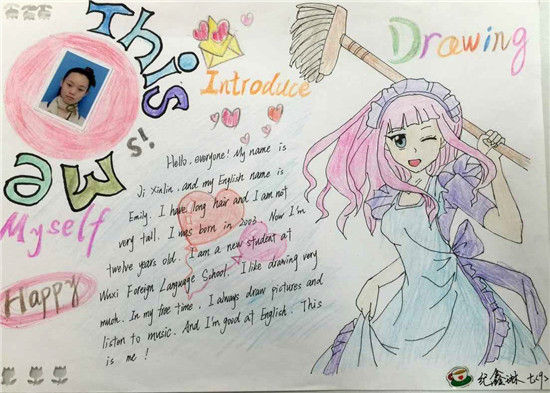 This
is
me
!
Introduce
Myself
Happy
Drawing
Hello, everyone! My name is
Ji Xinlin, and my English name is
Emily. I have long hair and I am not
very tall. I was born in 2003. Now I'm
twelve years old. I am a new student at
Wuxi Foreign Language School. I like drawing very
much. In my free time. I always draw pictures and
listen to music. And I'm good at English. This
is me!
纪鑫淋 七<9>